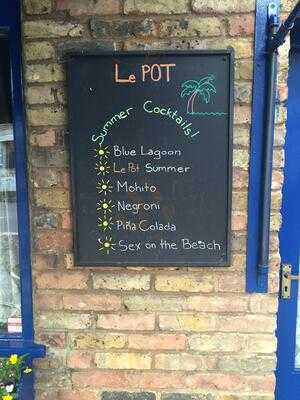 Le POT
Summer Cocktails!
Blue Lagoon
Le Pot Summer
Mohito
Negroni
Piña Colada
Sex on the Beach